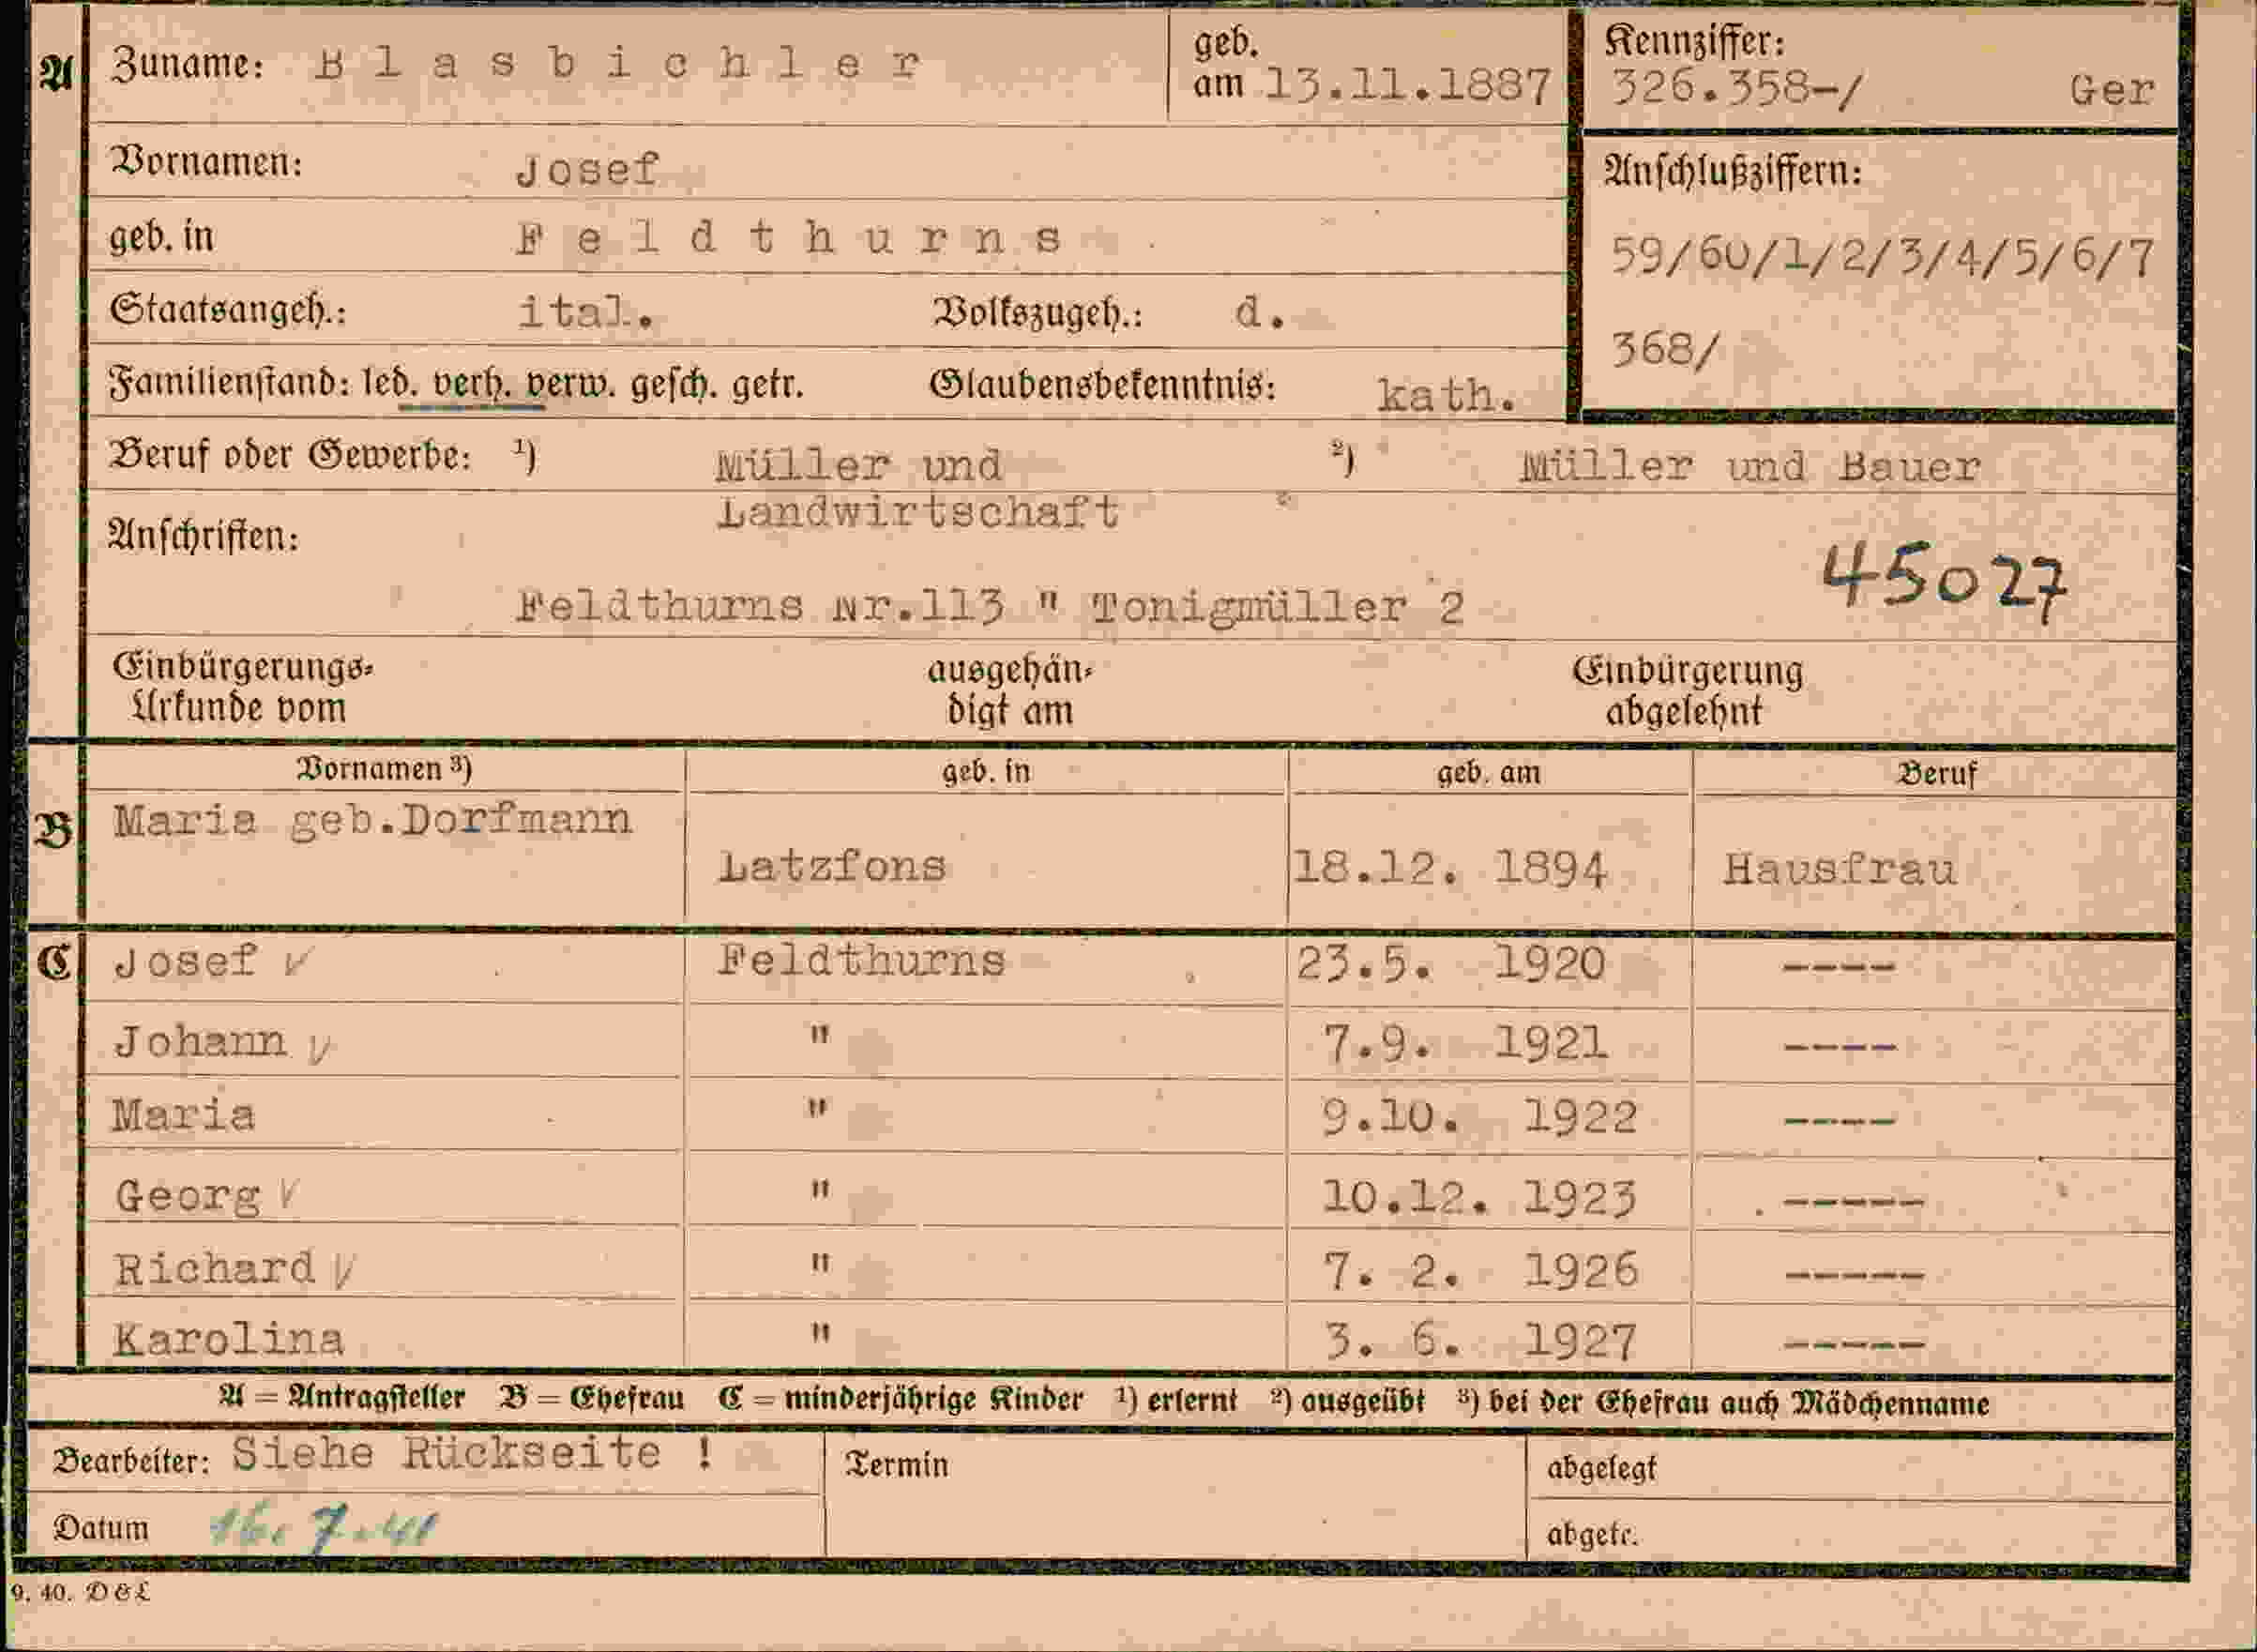 A Zuname: Blasbichler geb. am 13.11.1887 Kennziffer: 326.358-/ Ger
Vornamen: Josef Anschlußziffern:
geb. in Feldthurns 59/60/1/2/3/4/5/6/7
Staatsangeh.: ital. Volkszugeh.: d. 368/
Familienstand: led. verh. verw. gesch. getr. Glaubensbekenntnis: kath.
Beruf oder Gewerbe: ¹) Müller und ²) Müller und Bauer
Landwirtschaft
Anschriften:
45027
Feldthurns Nr.113 " Tonigmüller 2
Einbürgerungs- ausgehän- Einbürgerung
Urkunde vom digt am abgelehnt
Vornamen ³) geb. in geb. am Beruf
B Maria geb.Dorfmann
Latzfons 18.12. 1894 Hausfrau
C Josef V Feldthurns 23.5. 1920 ----
Johann V " 7.9. 1921 ----
Maria " 9.10. 1922 ----
Georg V " 10.12. 1923 -----
Richard V " 7. 2. 1926 -----
Karolina " 3. 6. 1927 -----
A = Antragsteller B = Ehefrau C = minderjährige Kinder ¹) erlernt ²) ausgeübt ³) bei der Ehefrau auch Mädchenname
Bearbeiter: Siehe Rückseite ! Termin abgelegt
Datum 16. 7. 41 abgetr.
9. 40. D & L